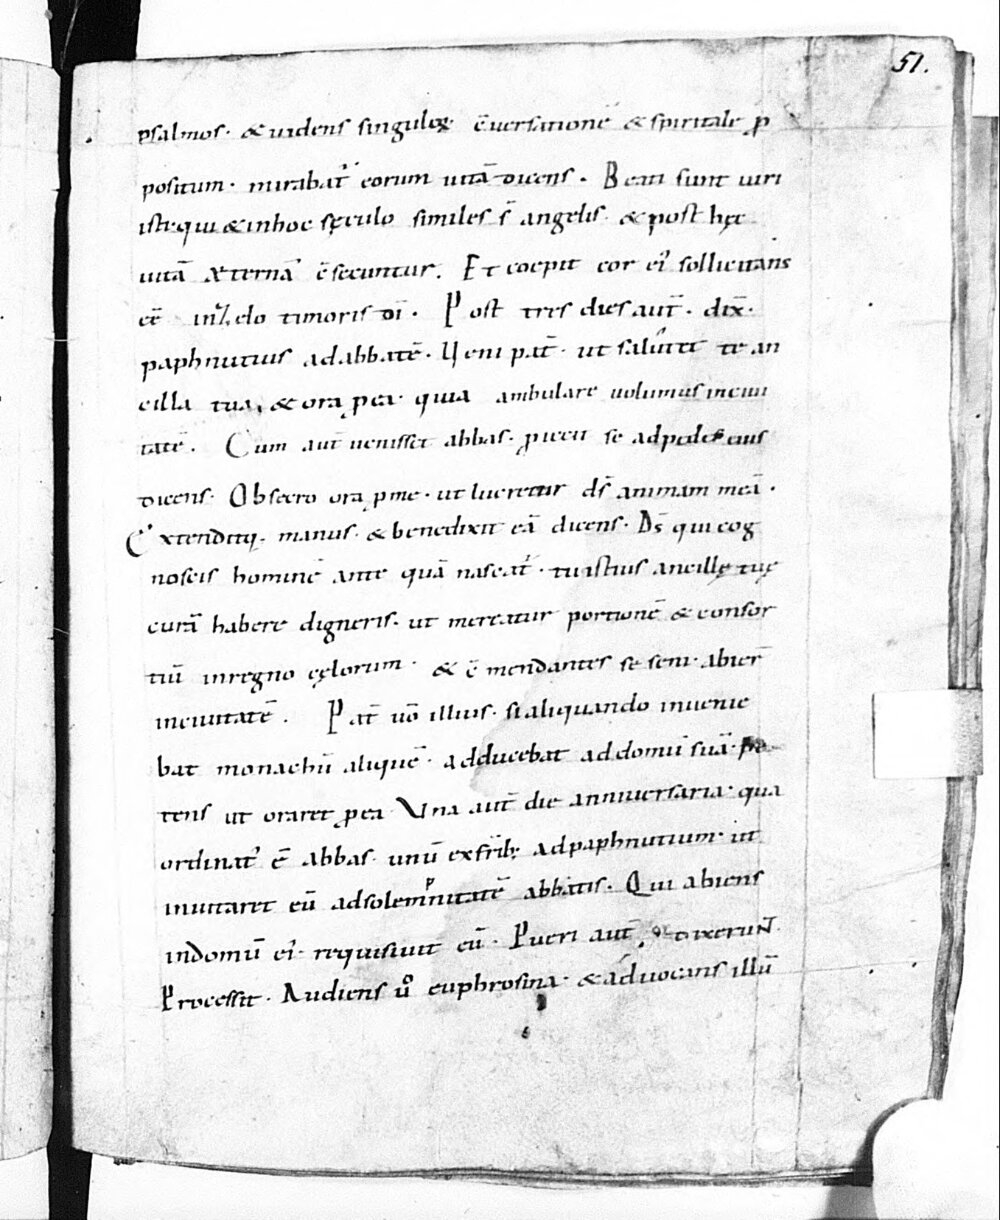 51.
psalmos· & uidens singuloꝝ c̄uersationē & spiritale ꝓ
positum· mirabat᷑ eorum uitā dicens· Beati sunt uiri
iste qui & in hoc sęculo similes s̄ angelis· & post hęc
uitā æternā c̄secuntur. Et coepit cor ei᷒ sollicitans
eē in zelo timoris dī· Post tres dies aut̄· dix̄·
paphnutius ad abbatē· Ueni pat̄· ut salutet te an
cilla tua, & ora ꝓ ea· quia ambulare uolumus in ciui
tatē. Cum aut̄ uenisset abbas· ꝓiecit se ad pedes eius
dicens· Obsecro ora ꝓ me· ut lucretur d̄s animam meā·
Extenditq;· manus· & benedixit eā dicens· D̄s qui cog
noscis hominē ante quā nascat᷑· tu istius ancillę tuę
curā habere digneris· ut mereatur portionē & consor
tiū in regno cęlorum· & c̄mendantes se seni· abier̄
in ciuitatē. Pat̄ uō illius· si aliquando inuenie
bat monachū aliquē· adducebat ad domū suā· pe
tens ut oraret ꝓ ea· Una aut̄ die anniuersaria· qua
ordinat᷒ ē abbas· unū ex fr̄ib; ad paphnutium· ut
inuitaret eū ad solempnitatē abbatis· Qui abiens
in domū ei᷒ requisiuit eū· Pueri aut̄ dixerunt
Processit· Audiens ū᷎ euphrosina· & aduocans illū